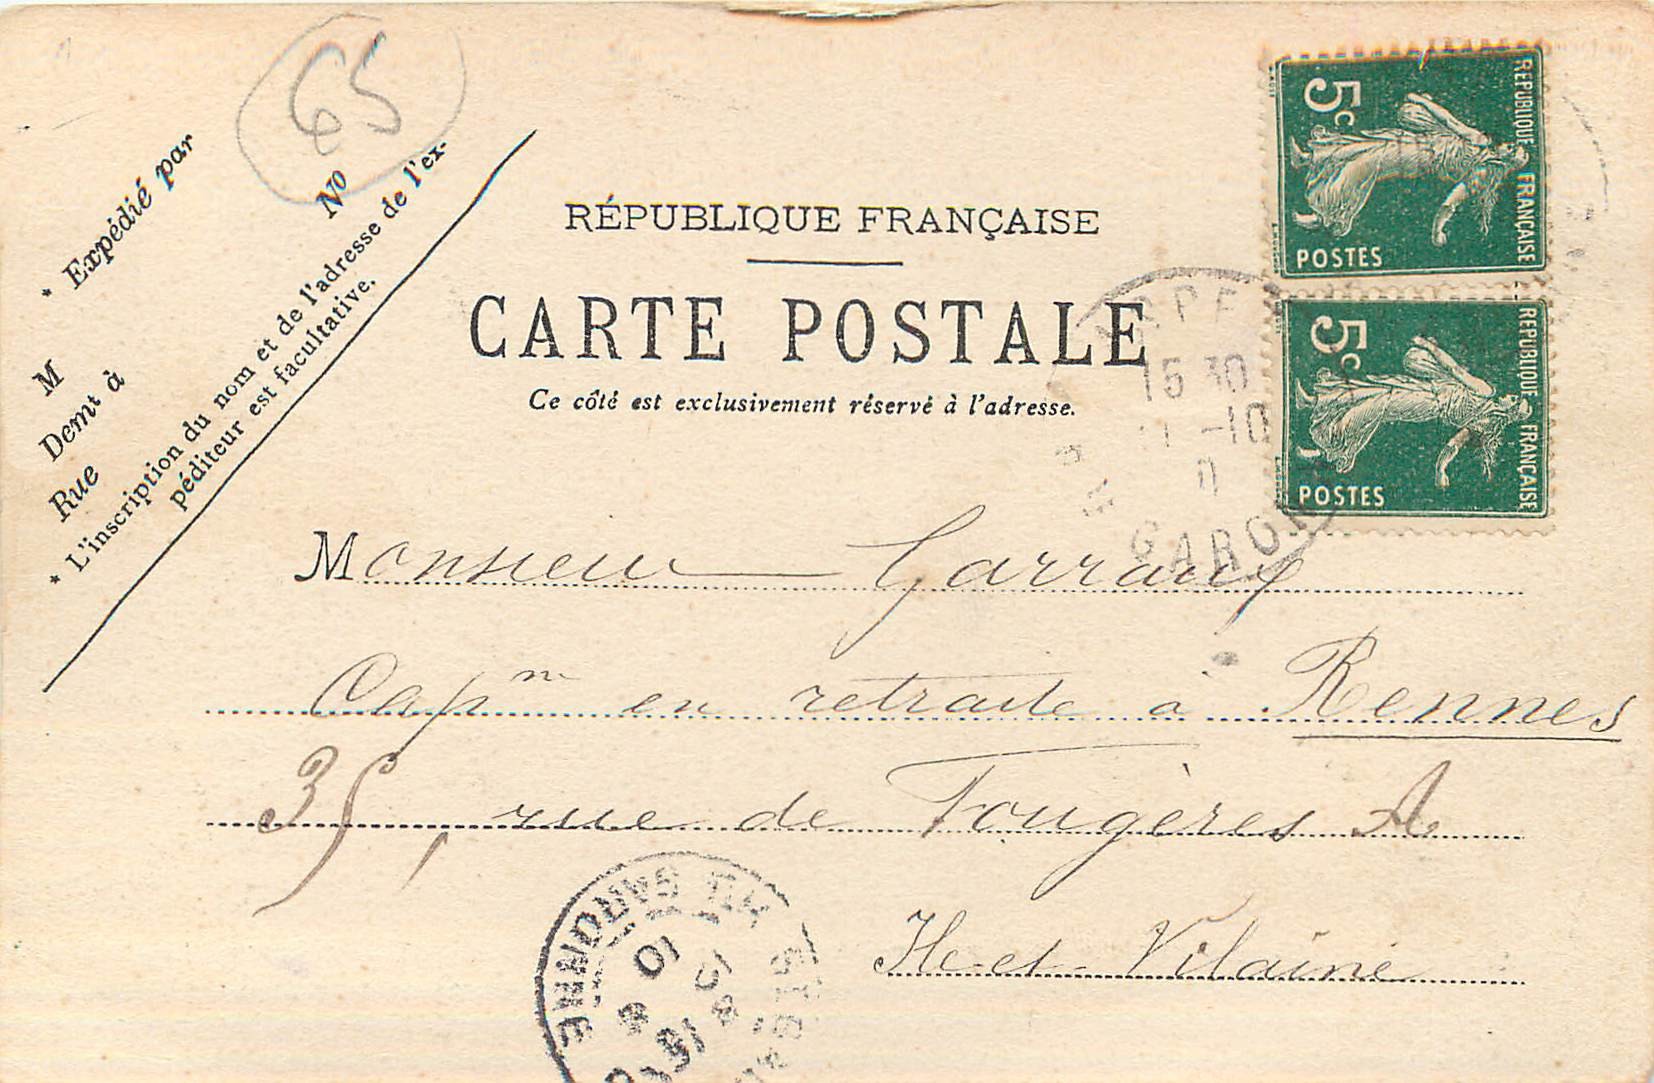 65
* Expédié par
No
M
Demt à
Rue
* L'inscription du nom et de l'adresse de l'ex-
péditeur est facultative.
RÉPUBLIQUE FRANÇAISE
CARTE POSTALE
Ce côté est exclusivement réservé à l'adresse.
REPUBLIQUE FRANÇAISE
5c
POSTES
REPUBLIQUE FRANÇAISE
5c
POSTES
15 30
-10
GARONNE
Monsieur Garraux
Capne en retraite à Rennes
35, rue de Fougères A
Ile-et-Vilaine
GARONNE
10